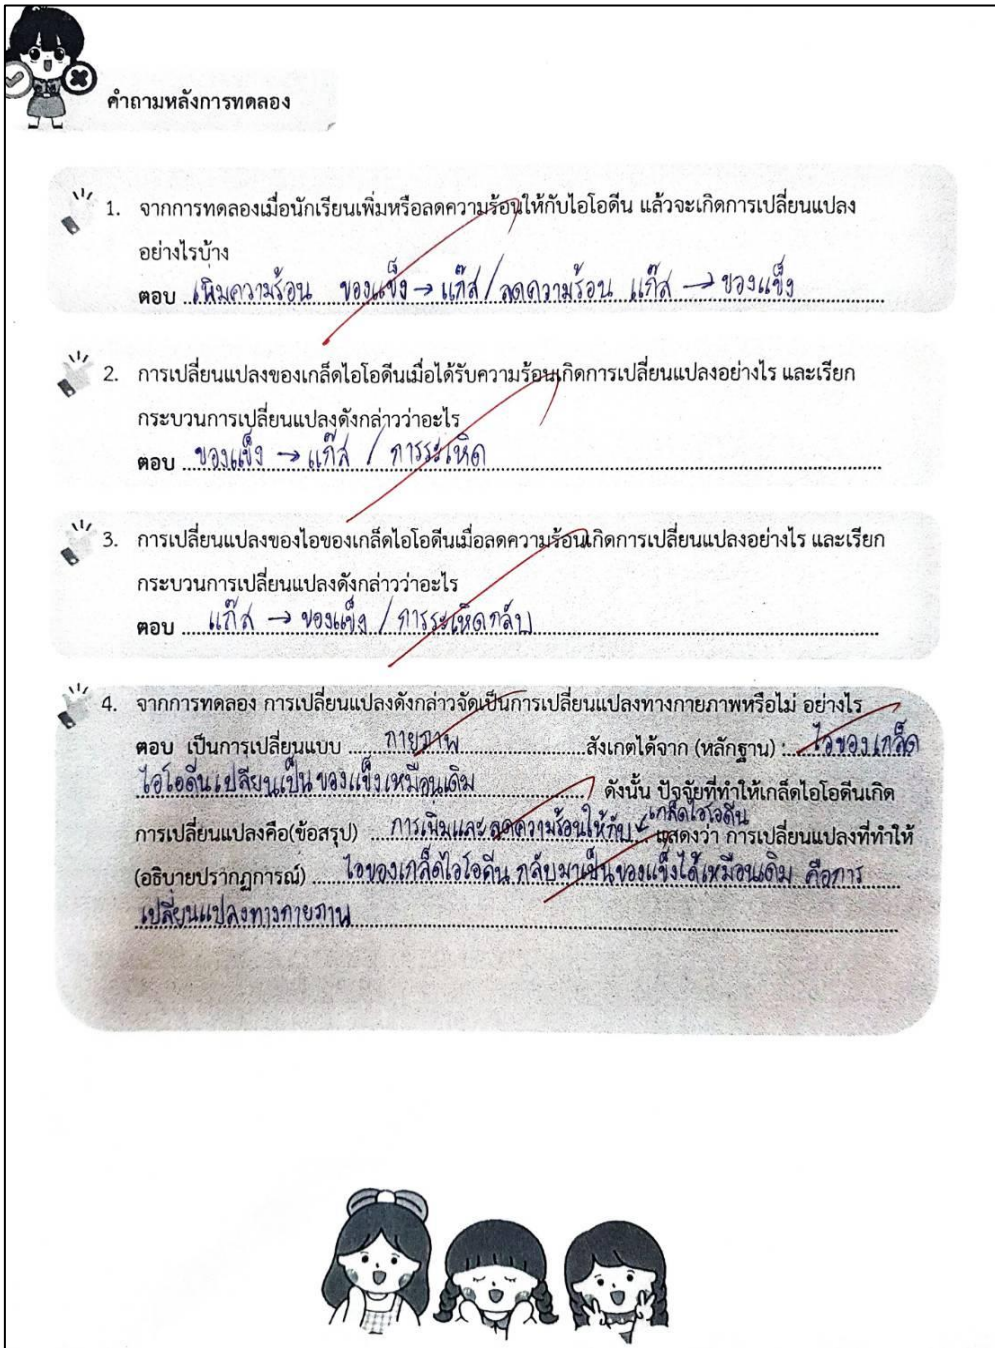 คำถามหลังการทดลอง
1. จากการทดลองเมื่อนักเรียนเพิ่มหรือลดความร้อนให้กับไอโอดีน แล้วจะเกิดการเปลี่ยนแปลง
อย่างไรบ้าง
ตอบ เพิ่มความร้อน ของแข็ง → แก๊ส / ลดความร้อน แก๊ส → ของแข็ง
2. การเปลี่ยนแปลงของเกล็ดไอโอดีนเมื่อได้รับความร้อนเกิดการเปลี่ยนแปลงอย่างไร และเรียก
กระบวนการเปลี่ยนแปลงดังกล่าวว่าอะไร
ตอบ ของแข็ง → แก๊ส / การระเหิด
3. การเปลี่ยนแปลงของไอของเกล็ดไอโอดีนเมื่อลดความร้อนเกิดการเปลี่ยนแปลงอย่างไร และเรียก
กระบวนการเปลี่ยนแปลงดังกล่าวว่าอะไร
ตอบ แก๊ส → ของแข็ง / การระเหิดกลับ
4. จากการทดลอง การเปลี่ยนแปลงดังกล่าวจัดเป็นการเปลี่ยนแปลงทางกายภาพหรือไม่ อย่างไร
ตอบ เป็นการเปลี่ยนแบบ กายภาพ สังเกตได้จาก (หลักฐาน) : ไอของเกล็ด
ไอโอดีนเปลี่ยนเป็นของแข็งเหมือนเดิม ดังนั้น ปัจจัยที่ทำให้เกล็ดไอโอดีนเกิด
การเปลี่ยนแปลงคือ(ข้อสรุป) การเพิ่มและลดความร้อนให้กับเกล็ดไอโอดีน แสดงว่า การเปลี่ยนแปลงที่ทำให้
(อธิบายปรากฏการณ์) ไอของเกล็ดไอโอดีน กลับมาเป็นของแข็งได้เหมือนเดิม คือการ
เปลี่ยนแปลงทางกายภาพ